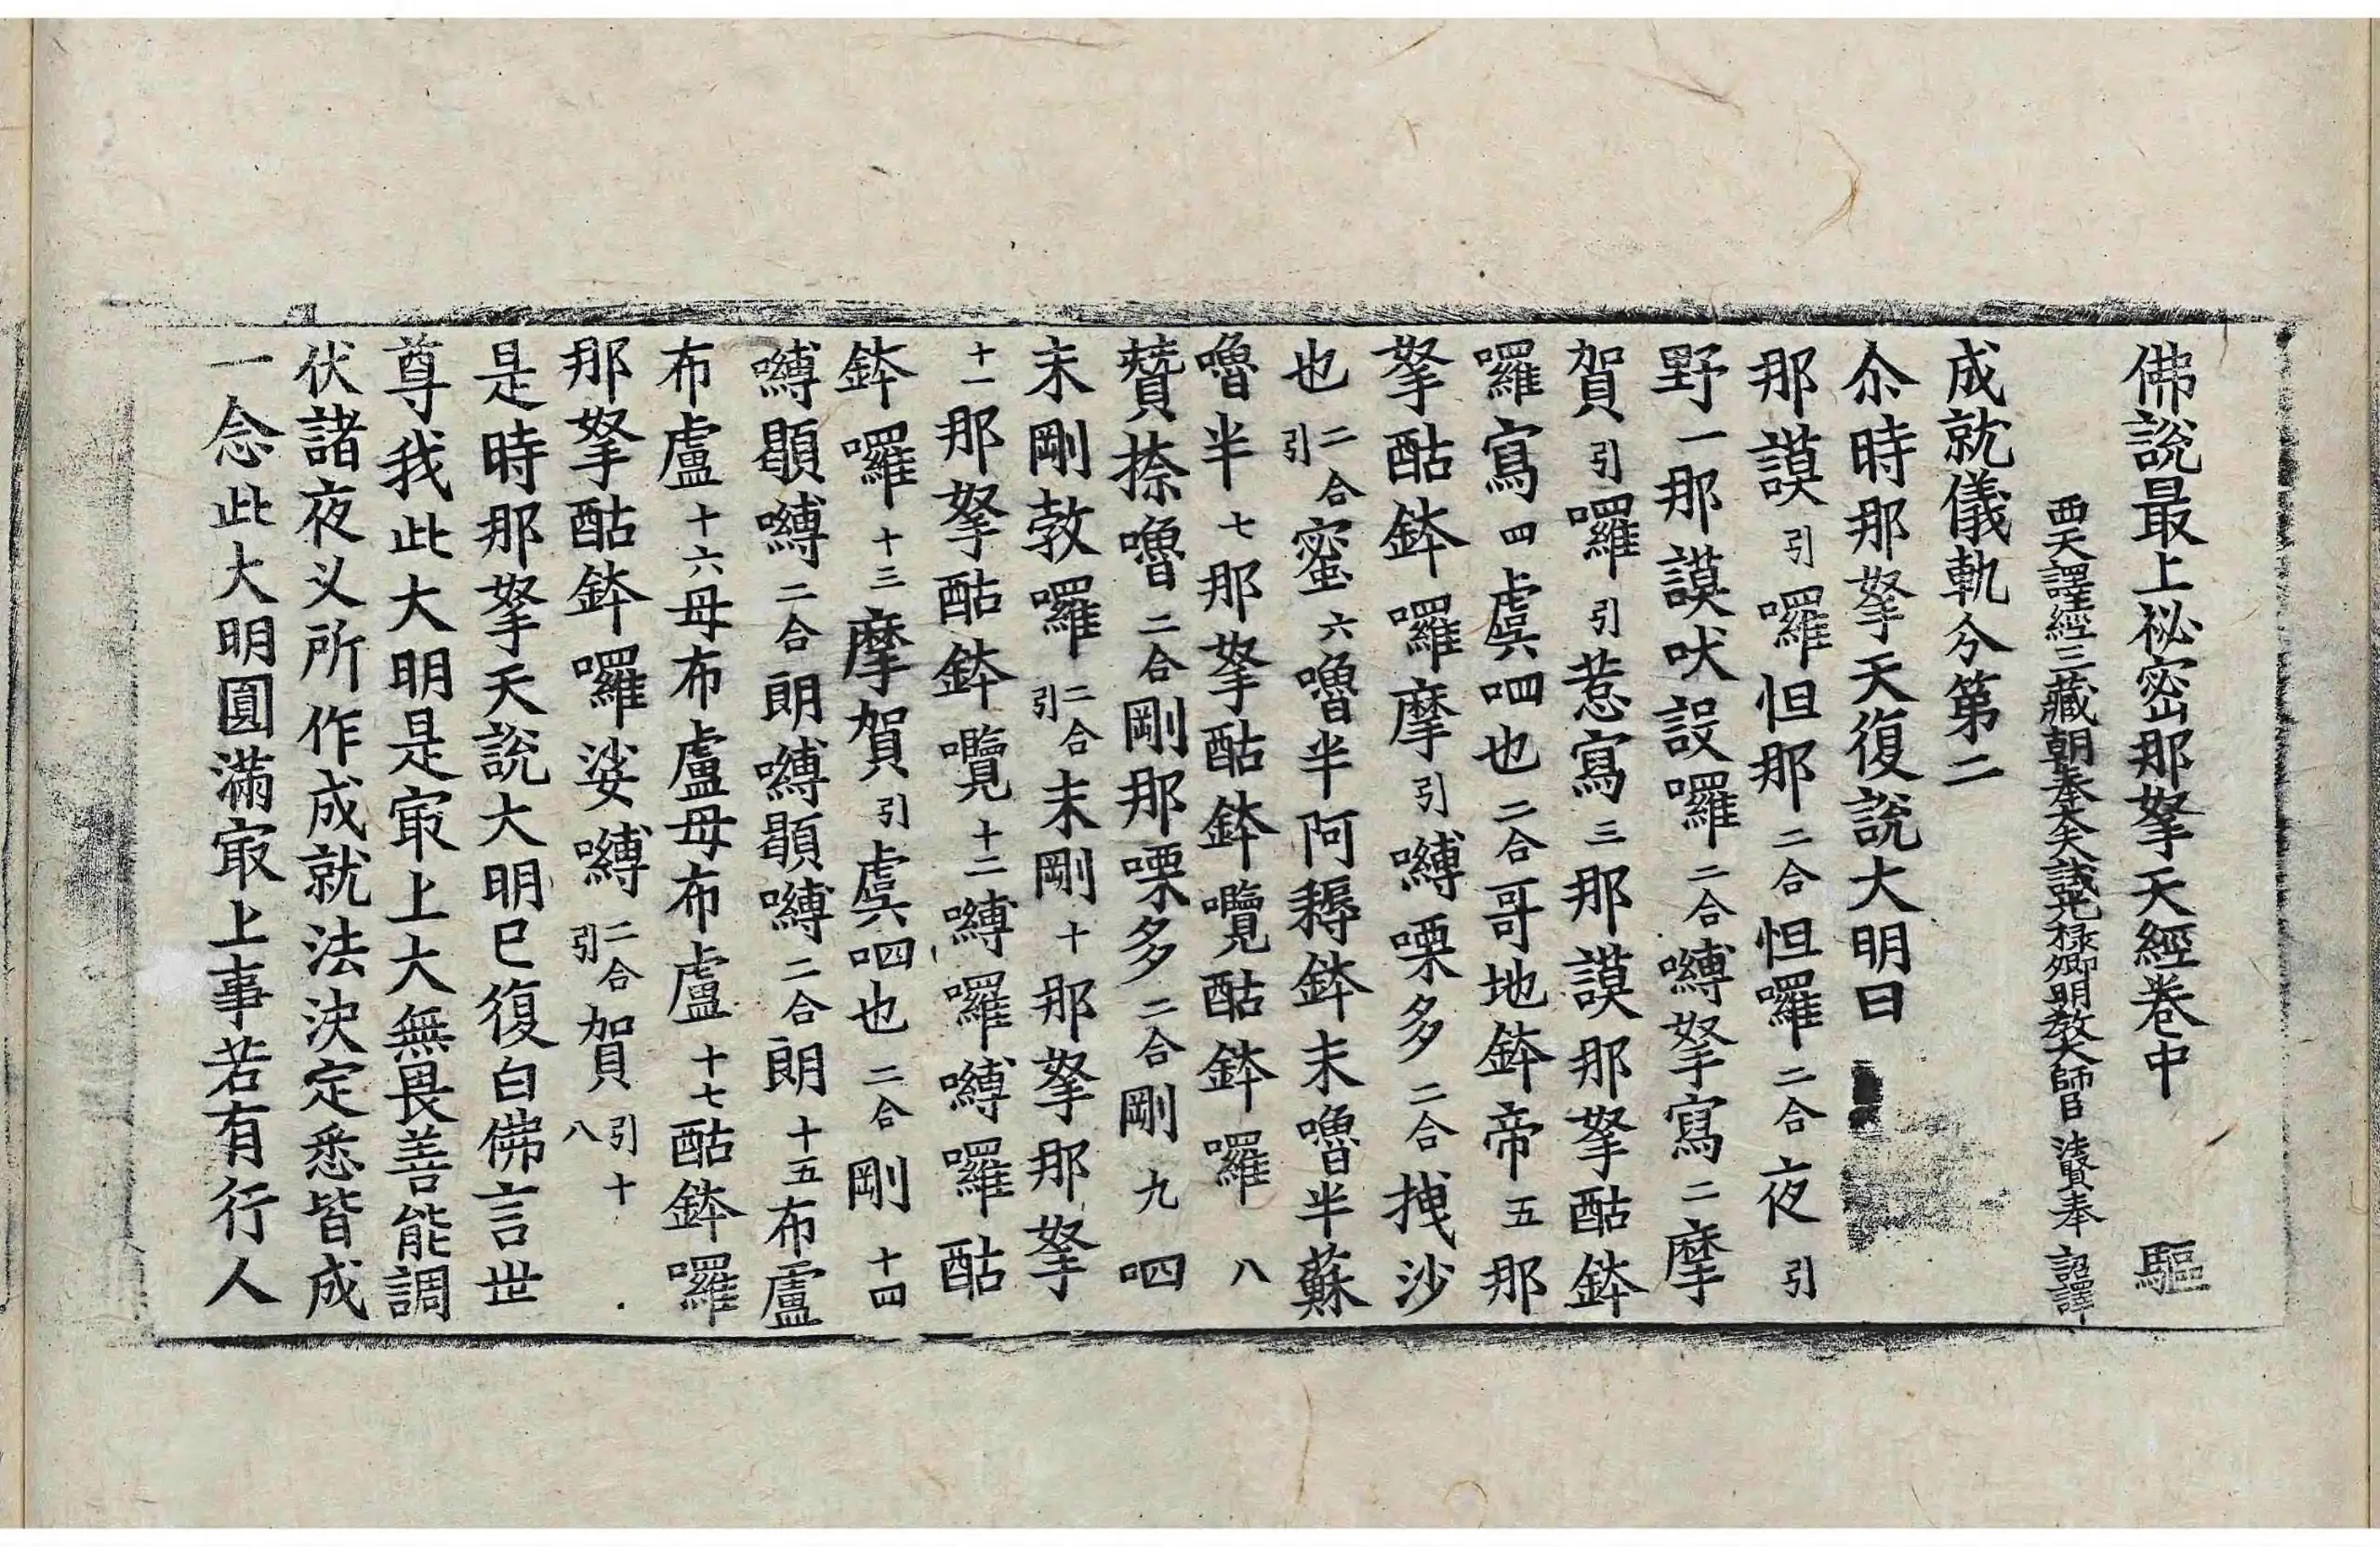 佛說最上祕密那拏天經卷中　驅
西天譯經三藏朝奉大夫試光祿卿明教大師臣法賢奉　詔譯
成就儀軌分第二
尒時那拏天復說大明曰
那謨引囉怛那二合怛囉二合夜引
野一那謨吠設囉二合嚩拏寫二摩
賀引囉引惹寫三那謨那拏酤鉢
囉寫四虞呬也二合哥地鉢帝五那
拏酤鉢囉摩引嚩㗚多二合拽沙
也二合引蜜六嚕半阿耨鉢末嚕半蘇
嚕半七那拏酤鉢囕酤鉢囉八
贊捺嚕二合剛那㗚多二合剛九呬
末剛敦囉二合引末剛十那拏那拏
十一那拏酤鉢囕十二嚩囉嚩囉酤
鉢囉十三摩賀引虞呬也二合剛十四
嚩顯嚩二合朗嚩顯嚩二合朗十五布盧
布盧十六母布盧母布盧十七酤鉢囉
那拏酤鉢囉娑嚩二合引賀引十八
是時那拏天說大明已復白佛言世
尊我此大明是㝡上大無畏善能調
伏諸夜叉所作成就法決定悉皆成
一念此大明圓滿㝡上事若有行人